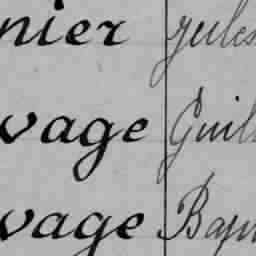 nier Jules
vage Guil
vage Bap